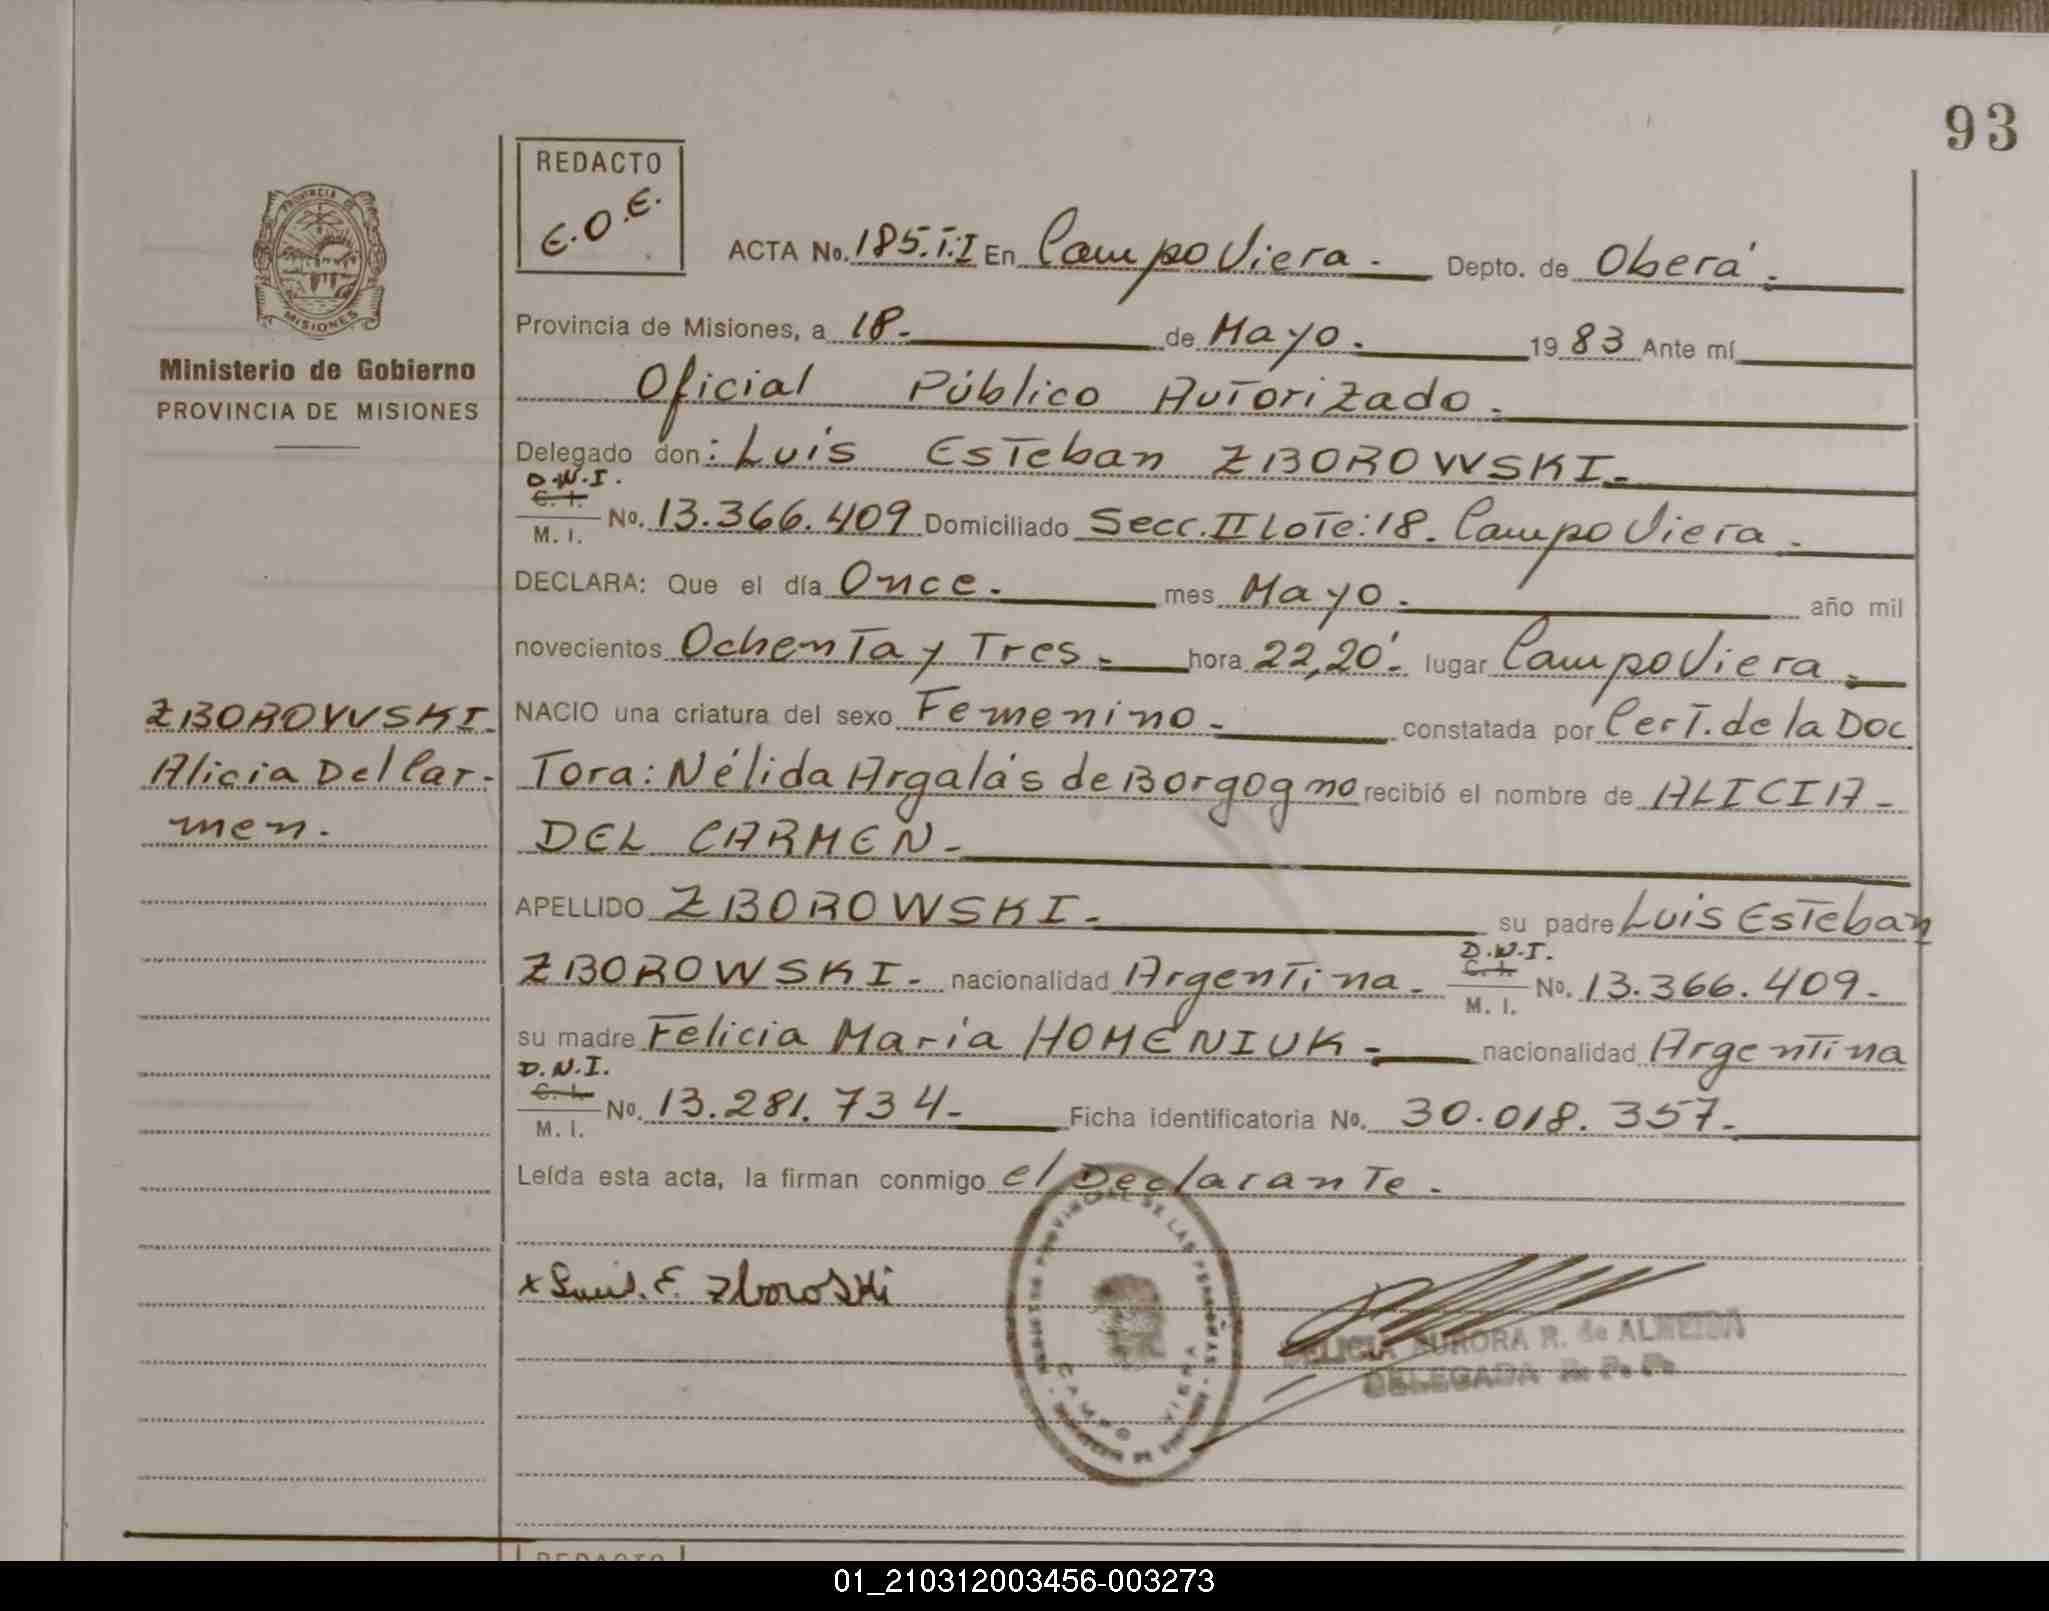 93
REDACTO
E.O.E.
PROVINCIA DE
MISIONES
Ministerio de Gobierno
PROVINCIA DE MISIONES
ACTA No. 185.T:I En Campo Viera.- Depto. de Oberá.
Provincia de Misiones, a 18.- de Mayo. 1983 Ante mí
Oficial Público Autorizado.
Delegado don: Luis Esteban ZBOROWSKI.-
D.N.I.
C. I.
M. I. No. 13.366.409 Domiciliado Secc. II Lote: 18. Campo Viera.
DECLARA: Que el día Once. mes Mayo. año mil
novecientos Ochenta y Tres.- hora 22,20'. lugar Campo Viera.
ZBOROWSKI NACIO una criatura del sexo Femenino.- constatada por Cert. de la Doc
Alicia Del Car- Tora: Nélida Argalás de Borgogno recibió el nombre de ALICIA-
men. DEL CARMEN.-
APELLIDO ZBOROWSKI.- su padre Luis Esteban
D.N.I.
C. I.
ZBOROWSKI.- nacionalidad Argentina.- M. I. No. 13.366.409.-
su madre Felicia María HOMENIUK.- nacionalidad Argentina
D.N.I.
C. I.
M. I. No. 13.281.734- Ficha identificatoria No. 30.018.357.-
Leída esta acta, la firman conmigo el Declarante.
x Luis. E. Zboroski
PROVINCIAL DE LAS PERSONAS
CAMPO VIERA
FELICIA AURORA R. de ALMEIDA
DELEGADA R. P. P.
REDACTO
01_210312003456-003273